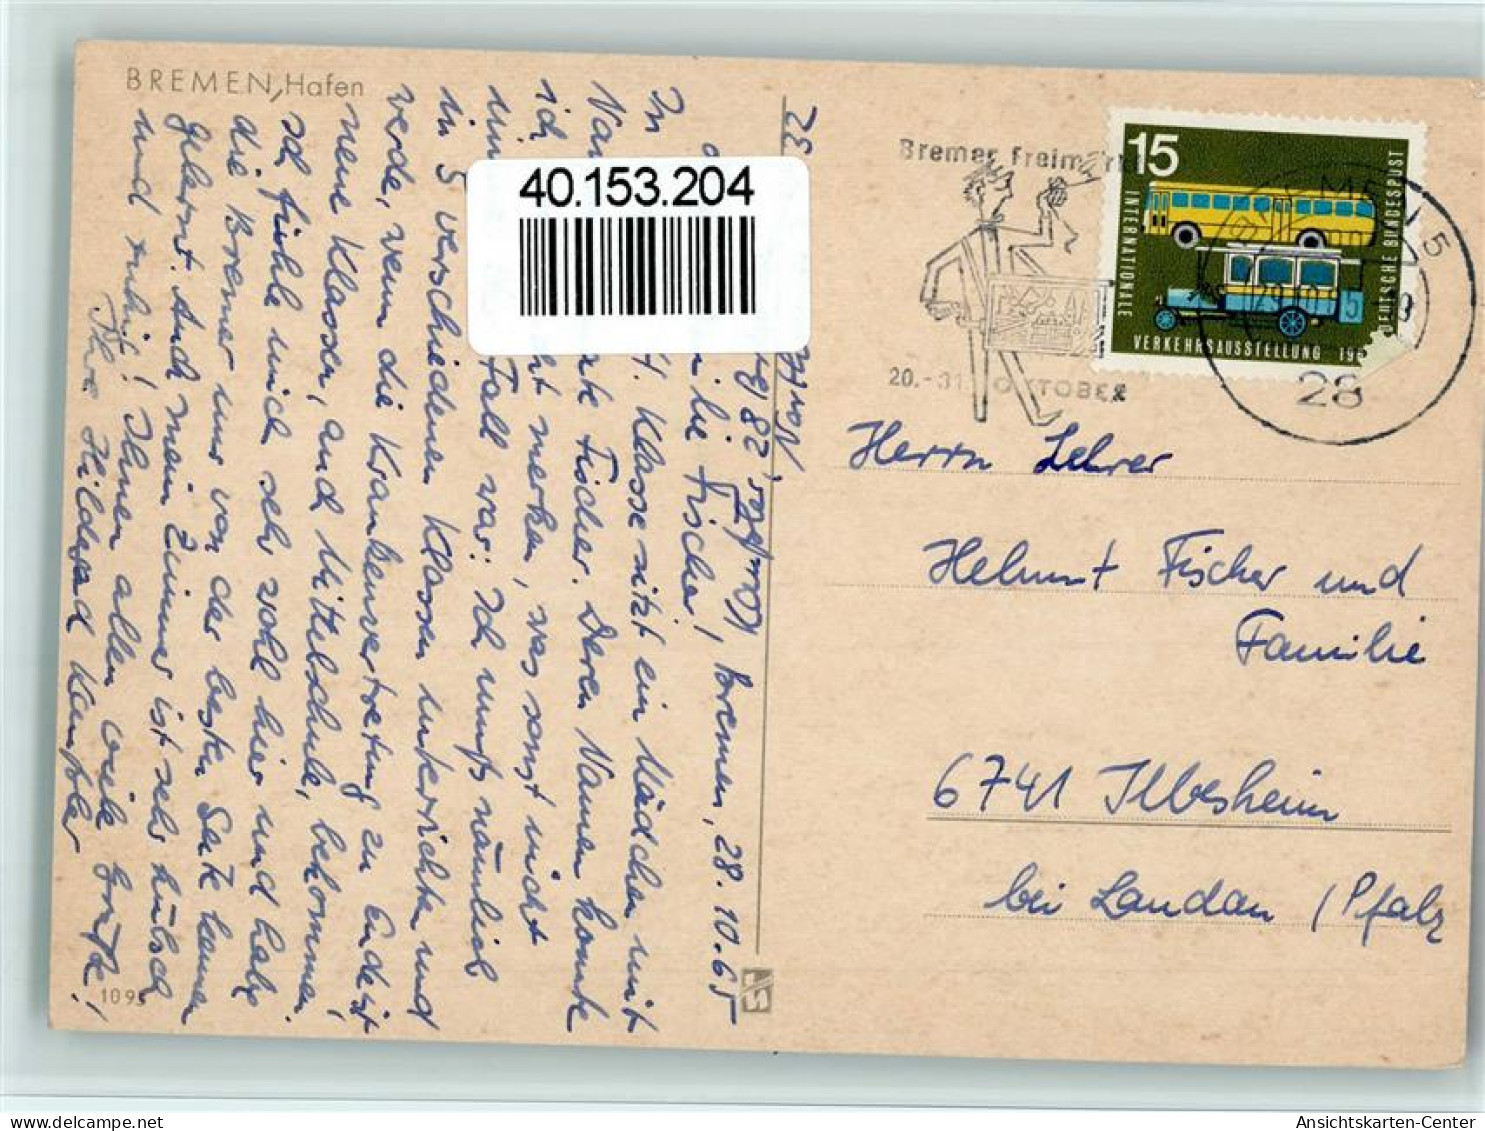 BREMEN, Hafen
28
Bremen, 28.10.65
Fischer!
In 4. Klasse sitzt ein Mädchen mit
Fischer. Deren Namen konnte
ich merken, was sonst nicht
Fall war: Ich muß nämlich
in 5 verschiedenen Klassen unterrichten und
werde, wenn die Krankenvertretung zu Ende ist
neue Klassen, auch Mittelschule, bekommen.
Ich fühle mich sehr wohl hier und habe
die Bremer nur von der besten Seite kennen
gelernt. Auch mein Zimmer ist sehr hübsch
und ruhig! Ihnen allen viele Grüße!
Ihre Hildegard
109
40.153.204
Bremer Freimarkt
20.-31. OKTOBER
15
INTERNATIONALE
VERKEHRSAUSSTELLUNG 196
DEUTSCHE BUNDESPOST
28
Herrn Lehrer
Helmut Fischer und
Familie
6741 Ilbesheim
bei Landau / Pfalz
Ansichtskarten-Center